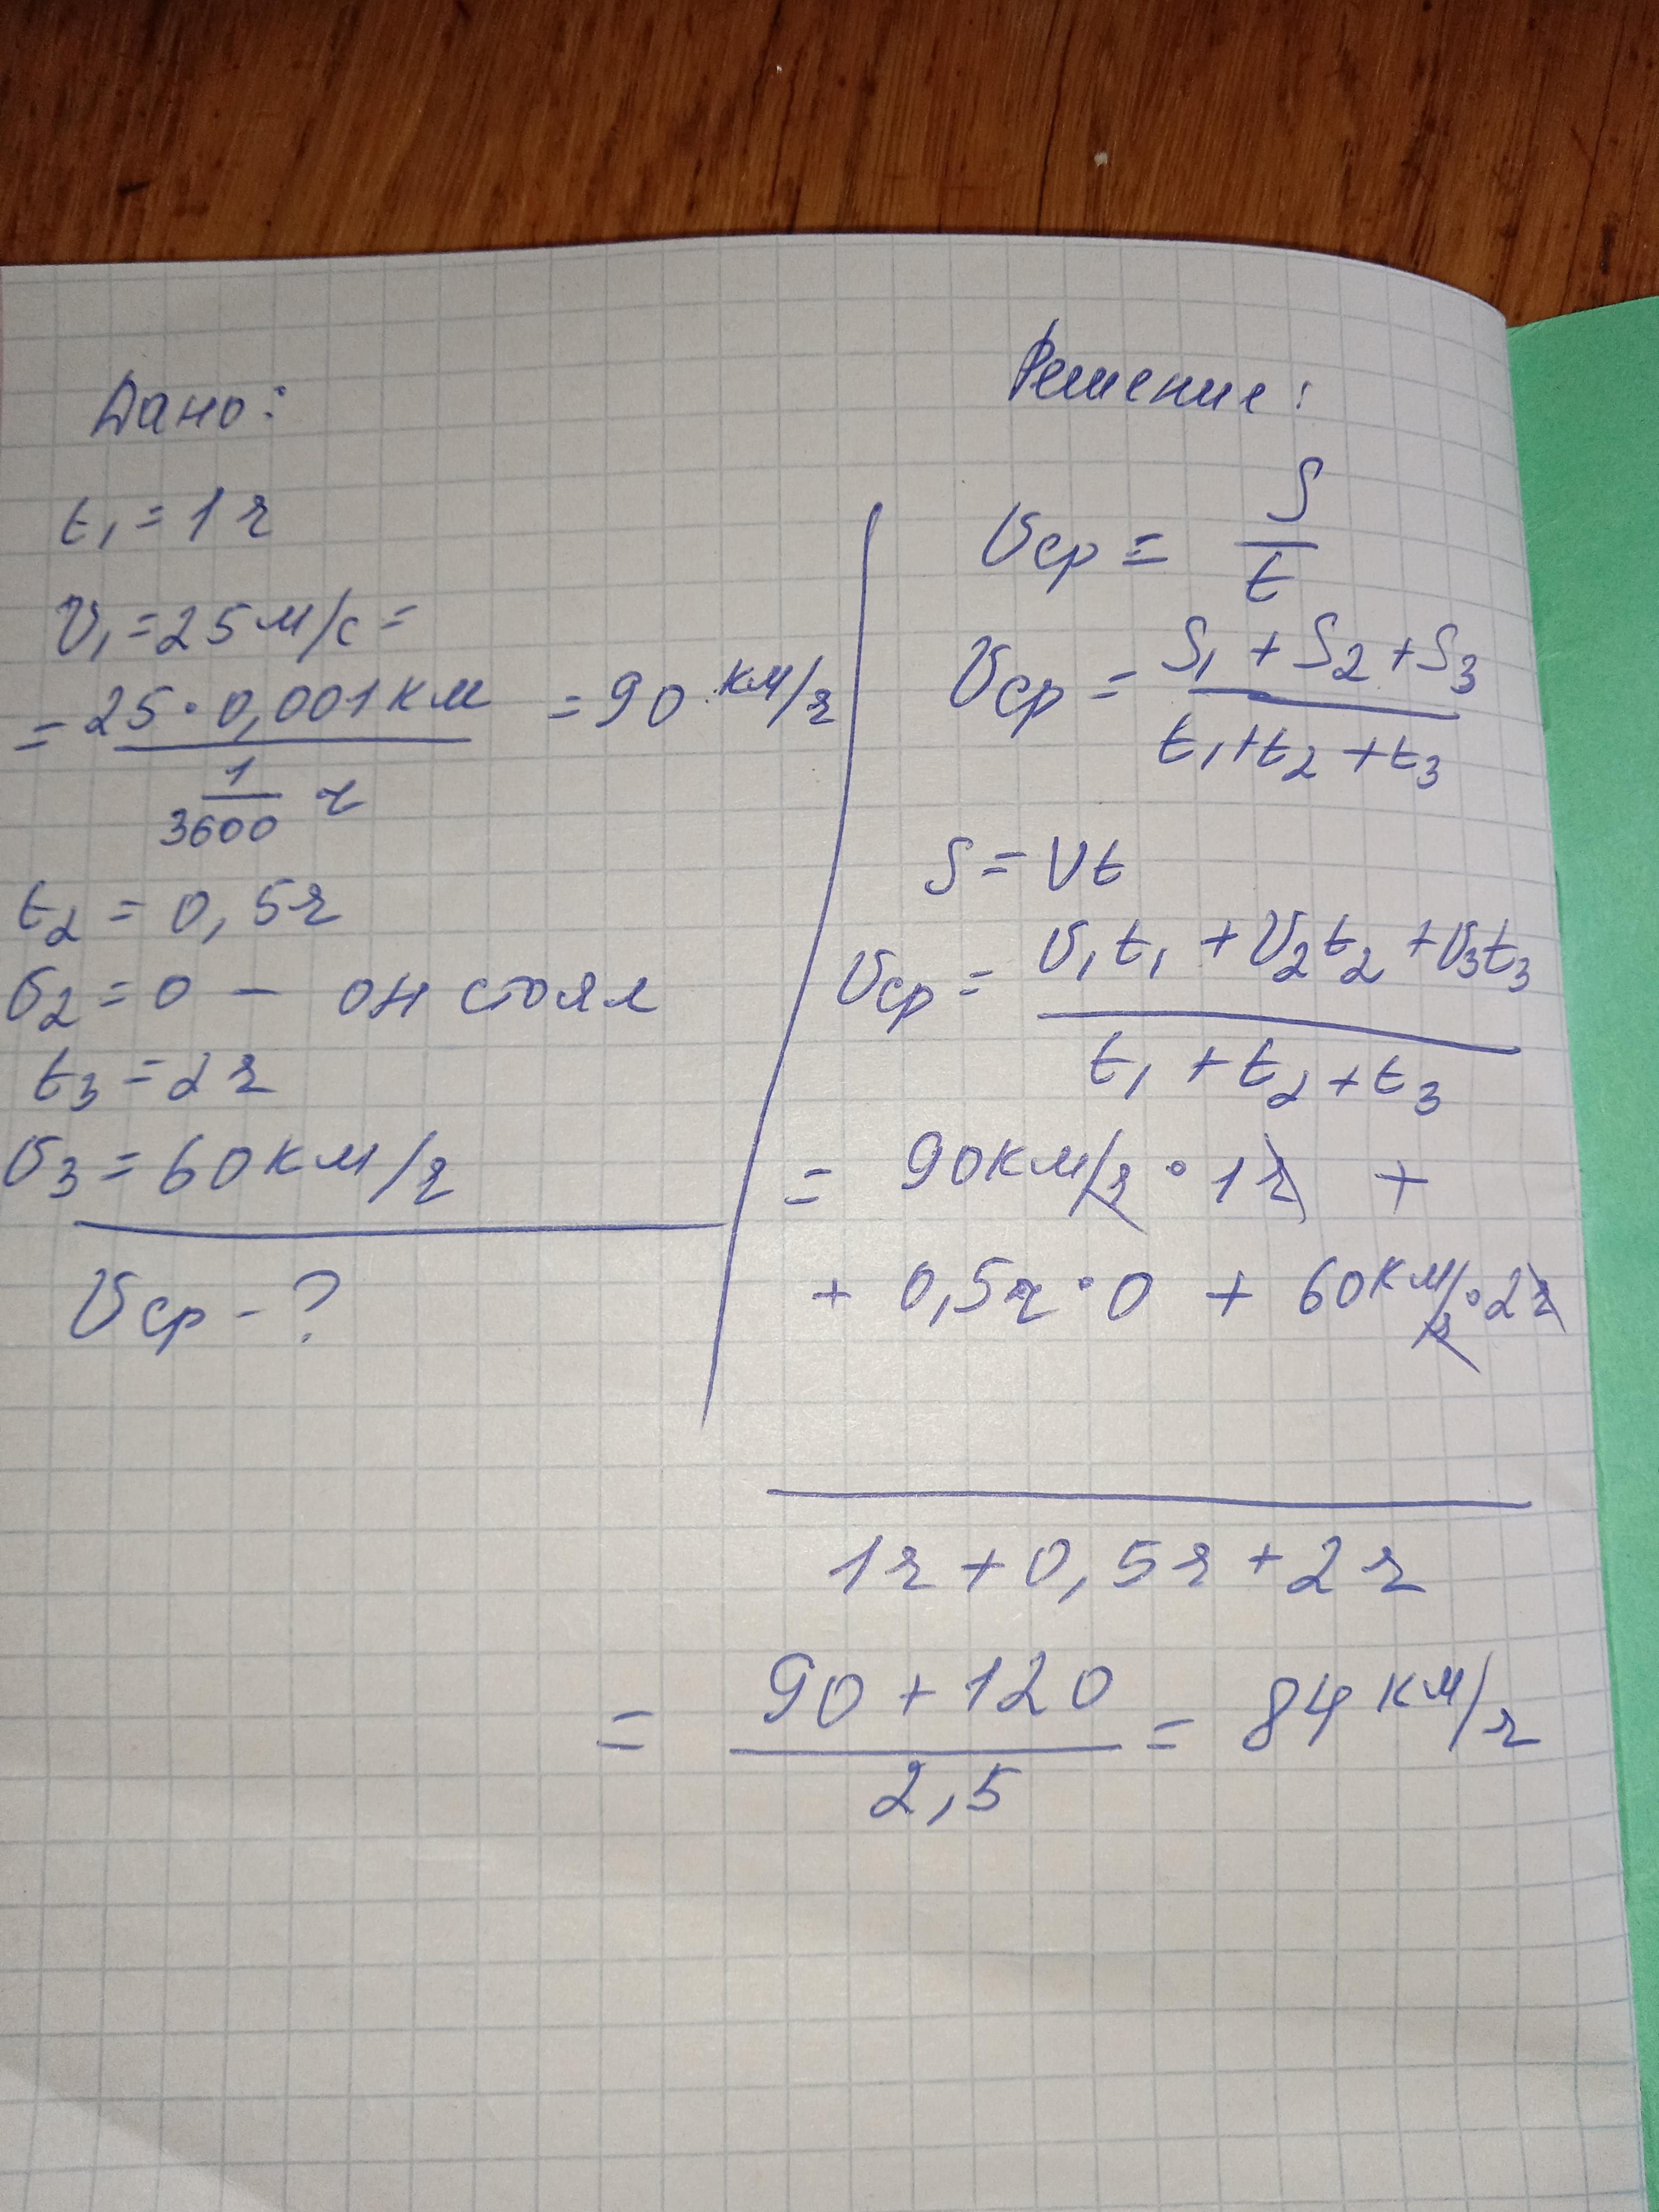 Дано:
t₁ = 1 ч
υ₁ = 25 м/с =
= 25 · 0,001 км / 1/3600 ч = 90 км/ч
t₂ = 0,5 ч
υ₂ = 0 – он стоял
t₃ = 2 ч
υ₃ = 60 км/ч
υср – ?
Решение:
υср = S / t
υср = S₁ + S₂ + S₃ / t₁ + t₂ + t₃
S = υt
υср = υ₁t₁ + υ₂t₂ + υ₃t₃ / t₁ + t₂ + t₃
= 90 км/ч · 1 ч +
+ 0,5 ч · 0 + 60 км/ч · 2 ч
1 ч + 0,5 ч + 2 ч
= 90 + 120 / 2,5 = 84 км/ч